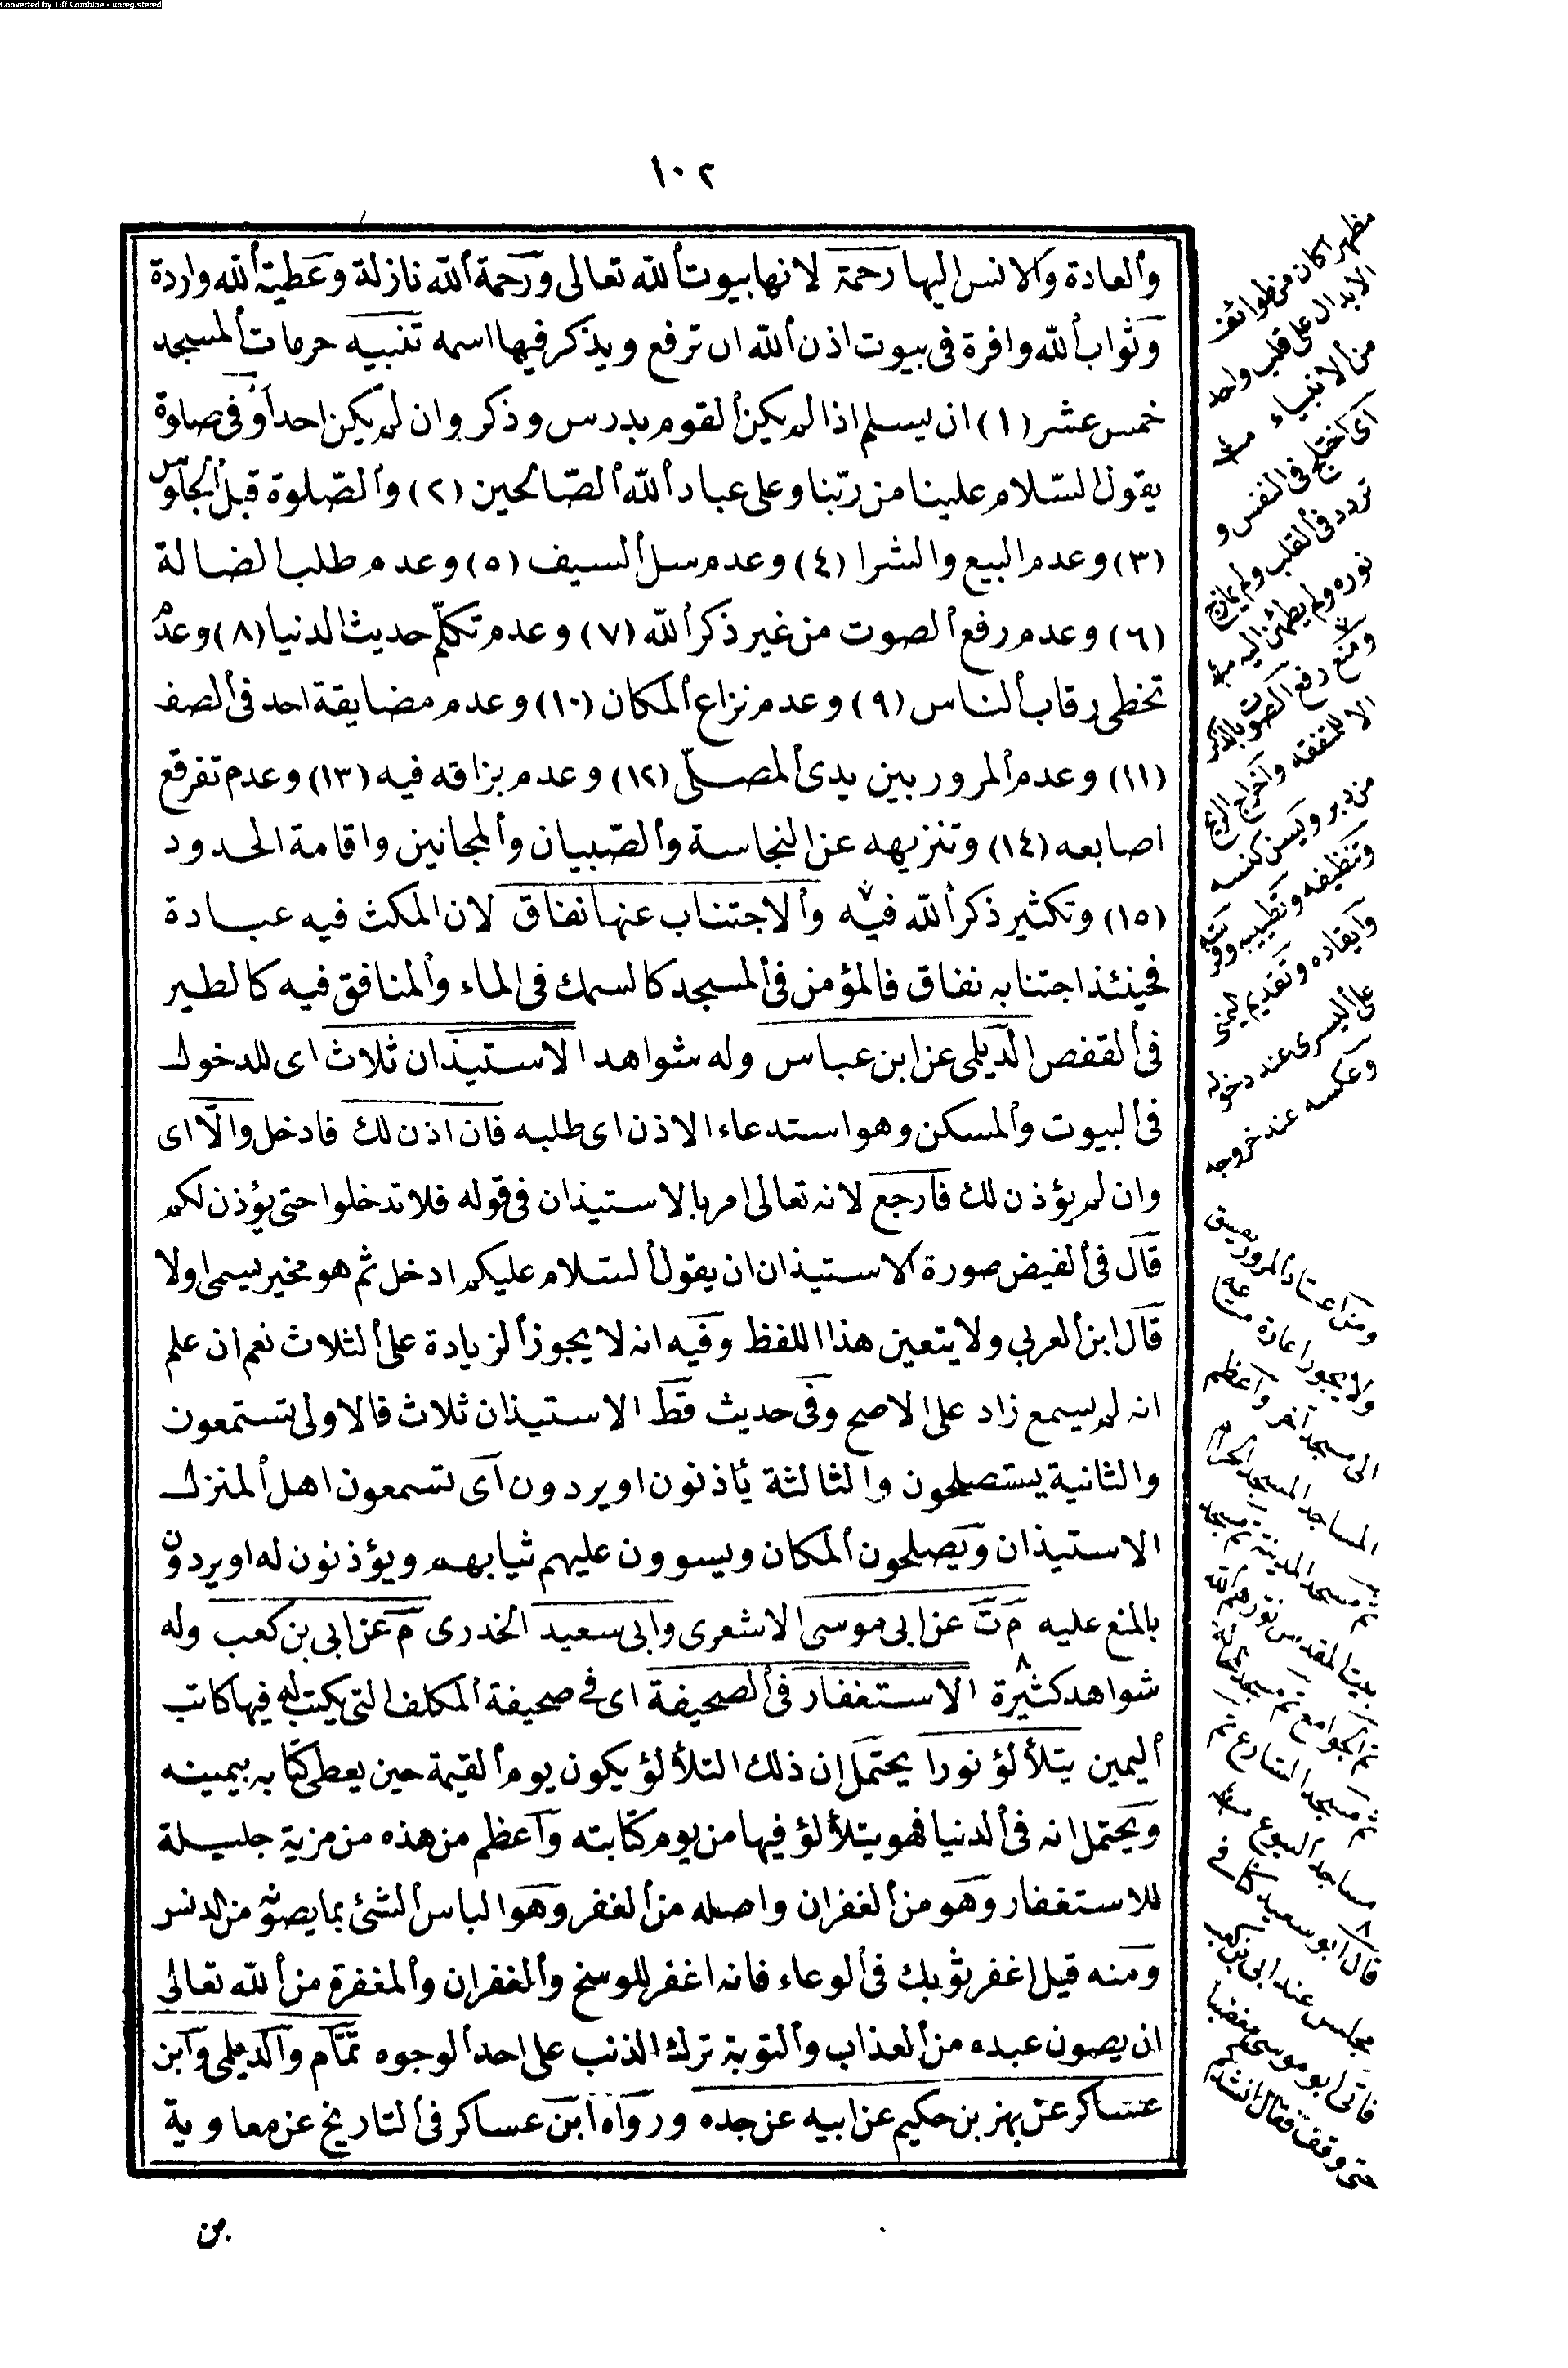 Converted by Tiff Combine - unregistered
١٠٢
والعادة والانس اليها رحمة لانها بيوت الله تعالى ورحمة الله نازلة وعطية الله واردة
وثواب الله وافرة فى بيوت اذن الله ان ترفع ويذكر فيها اسمه تنبيه حرمات المسجد
خمس عشر (١) ان يسلم اذا لم يكن القوم بدرس وذكر وان لم يكن احد او فى صلوة
يقول السّلام علينا من ربّنا وعلى عباد الله الصّالحين (٢) والصّلوة قبل الجلوس
(٣) وعدم البيع والشرا (٤) وعدم سل السيف (٥) وعدم طلب الضالة
(٦) وعدم رفع الصوت من غير ذكر الله (٧) وعدم تكلّم حديث الدنيا (٨) وعدم
تخطى رقاب الناس (٩) وعدم نزاع المكان (١٠) وعدم مضايقة احد فى الصف
(١١) وعدم المرور بين يدى المصلّى (١٢) وعدم بزاقه فيه (١٣) وعدم تفرقع
اصابعه (١٤) وتنزيهه عن النجاسة والصّبيان والمجانين واقامة الحدود
(١٥) وتكثير ذكر الله فيه والاجتناب عنها نفاق لان المكث فيه عبادة
فحينئذ اجتنابه نفاق فالمؤمن فى المسجد كالسمك فى الماء والمنافق فيه كالطير
فى القفص الدّيلمى عن ابن عباس وله شواهد الاستيذان ثلاث اى للدخول
فى البيوت والمسكن وهو استدعاء الاذن اى طلبه فان اذن لك فادخل والّا اى
وان لم يؤذن لك فارجع لانه تعالى امر بالاستيذان فى قوله فلا تدخلوا حتى يؤذن لكم
قال فى الفيض صورة الاستيذان ان يقول السّلام عليكم ادخل ثم هو مخير يسمى اولا
قال ابن العربي ولا يتعين هذا اللفظ وفيه انه لا يجوز الزيادة على الثلاث نعم ان علم
انه لم يسمع زاد على الاصح وفى حديث قط الاستيذان ثلاث فالاولى تستمعون
والثانية يستصلحون والثالثة يأذنون او يردون اى تسمعون اهل المنزل
الاستيذان ويصلحون المكان ويسوون عليهم ثيابهم ويؤذنون له او يردون
بالمنع عليه م ت عن ابى موسى الاشعرى وابى سعيد الخدرى م عن ابي بن كعب وله
شواهد كثيرة ٨ الاستغفار فى الصحيفة اى فى صحيفة المكلف التى يكتب له فيها كاتب
اليمين يتلألؤ نورا يحتمل ان ذلك التلألؤ يكون يوم القيمة حين يعطى كتابه بيمينه
ويحتمل انه فى الدنيا فهو يتلألؤ فيها من يوم كتابته واعظم من هذه من مزية جليلة
للاستغفار وهو من الغفران واصله من الغفر وهو الباس الشئ بما يصونه من الدنس
ومنه قيل اغفر ثوبك فى الوعاء فانه اغفر للوسخ والغفران والمغفرة من الله تعالى
ان يصون عبده من العذاب والتوبة ترك الذنب على احد الوجوه تمّام والديلمى وابن
عساكر عن بهز بن حكيم عن ابيه عن جده ورواه ابن عساكر فى التاريخ عن معاوية
من
مظهر اكان من طوائف
الابدال على قلب واحد
من الانبياء منه
اى اختلج فى النفس و
تردد فى القلب ولم يمازج
نوره ولم يطمئن اليه منه
ومنع رفع الصوت بالذكر
الا للمتفقه واخراج الريح
من دبر ويسن كنسه
وتنظيفه وتطييبه وفرشه
وايقاده وتقديم اليمنى
على اليسرى عند دخوله
وعكسه عند خروجه
ومن اعتاد المرور يفسق
ولا يجوز اعارة
الى مسجد آخر واعظم
المساجد المسجد الحرام
ثم مسجد المدينة ثم مسجد
بيت المقدس نورهم الله
ثم الجوامع ثم مسجد
ثم مسجد الشارع ثم
مساجد البيوع منه
٨ قال ابو سعيد كنا فى
مجلس عند ابى بن كعب
فاتى ابو موسى مغضبا
حتى وقف فقال انشدكم